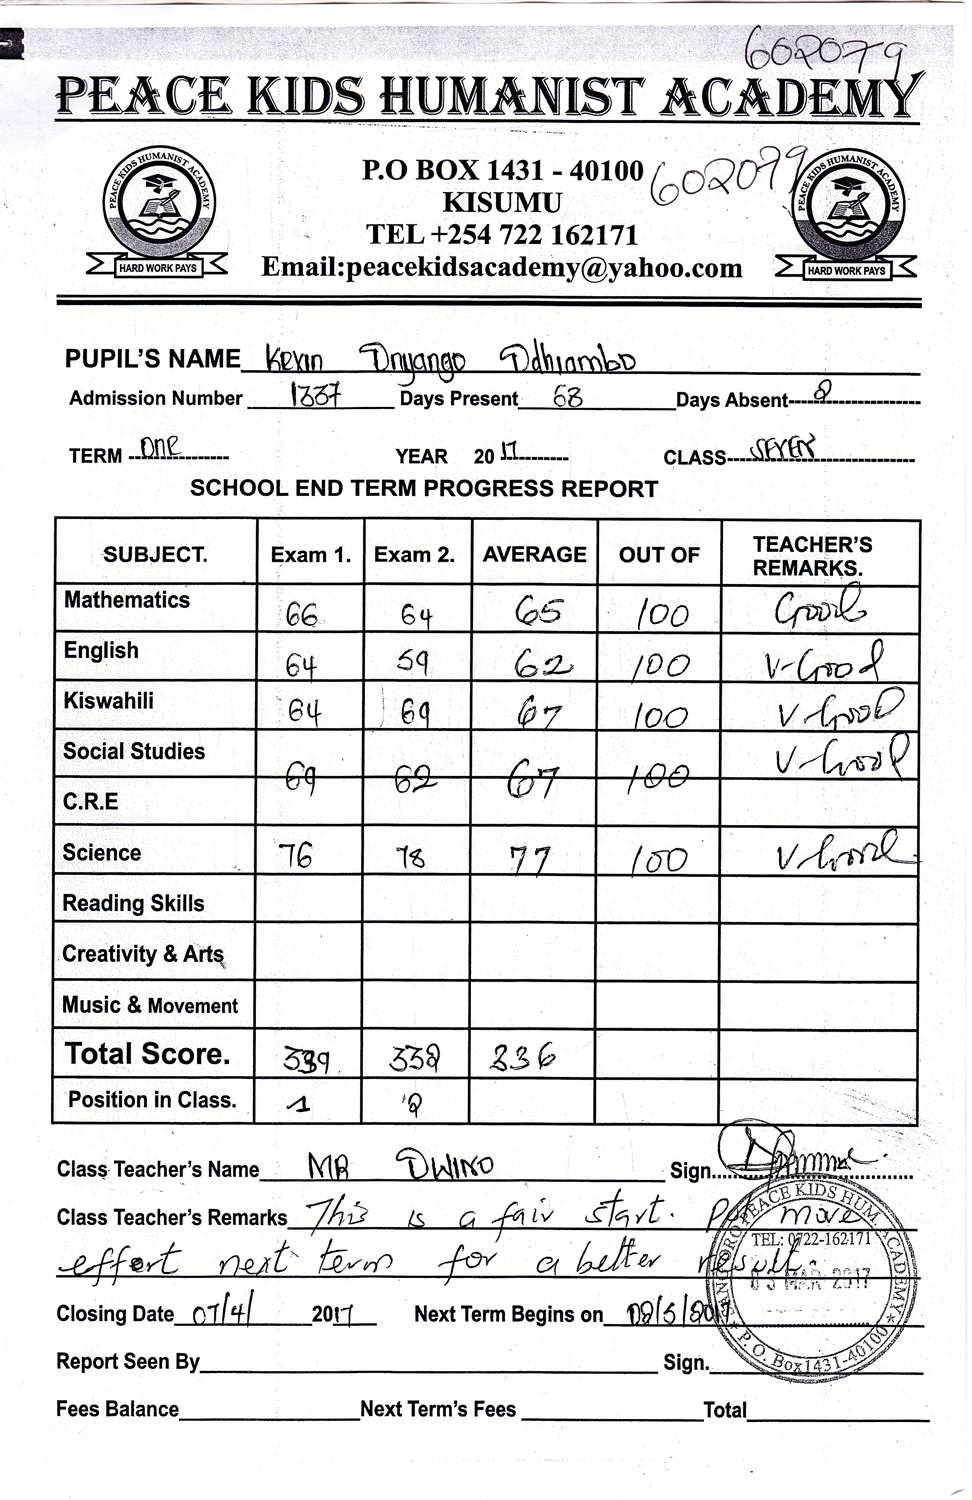 602079
PEACE KIDS HUMANIST ACADEMY
P.O BOX 1431 - 40100 602079
KISUMU
TEL +254 722 162171
Email:peacekidsacademy@yahoo.com
PEACE KIDS HUMANIST ACADEMY
HARD WORK PAYS
PEACE KIDS HUMANIST ACADEMY
HARD WORK PAYS
PUPIL'S NAME Kevin Onyango Odhiambo
Admission Number 1337 Days Present 63 Days Absent 2
TERM ONE YEAR 2017 CLASS SEVEN
SCHOOL END TERM PROGRESS REPORT
SUBJECT. Exam 1. Exam 2. AVERAGE OUT OF TEACHER'S REMARKS.
Mathematics 66 64 65 100 Good
English 64 59 62 100 V-Good
Kiswahili 64 69 67 100 V-Good
Social Studies 69 62 67 100 V-Good
C.R.E
Science 76 78 77 100 V Good
Reading Skills
Creativity & Arts
Music & Movement
Total Score. 339 332 336
Position in Class. 1 2
Class Teacher's Name MR OWINO Sign.
Class Teacher's Remarks This is a fair start. Put more
effort next term for a better result.
Closing Date 07/4/ 2017 Next Term Begins on 02/5/2017
Report Seen By Sign.
Fees Balance Next Term's Fees Total
PEACE KIDS HUM. ACADEMY
TEL: 0722-162171
03 MAR 2017
P.O. Box 1431-40100